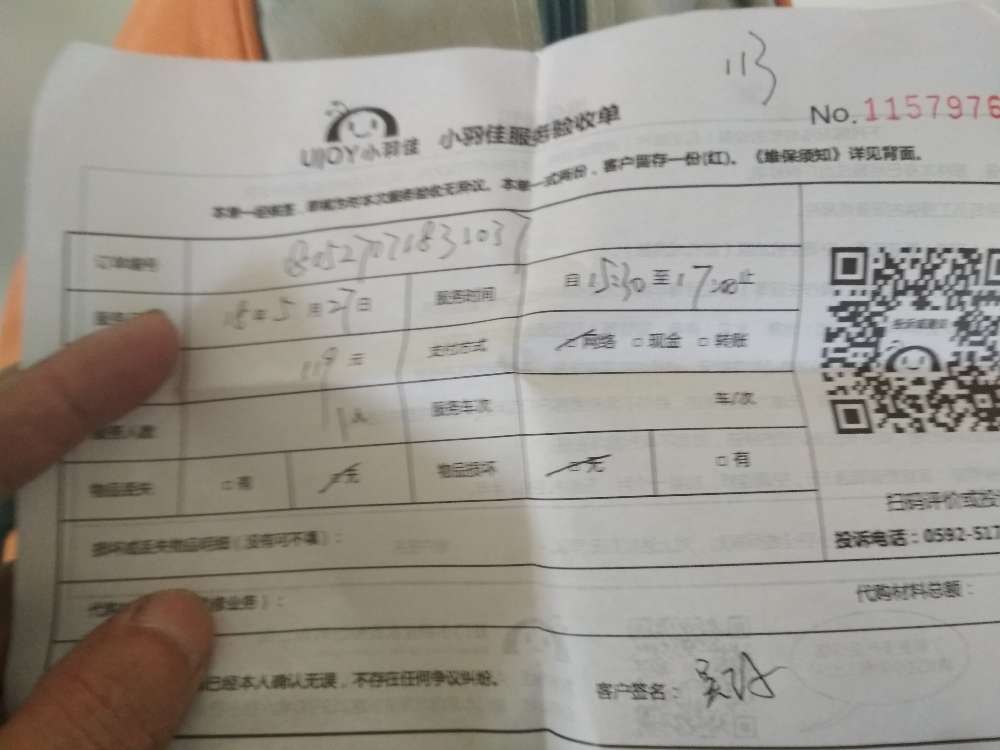 113
No.1157976
UJOY小羽佳 小羽佳服务验收单
本单一经签署,即视为对本次服务验收无异议。本单一式两份,客户留存一份(红)。《维保须知》详见背面。
订单编号
18年5月27日 服务时间 自15:30至17:00止
119元 支付方式 网络 □现金 □转账
服务人数 1人 服务车次 车/次
物品丢失 □有 无 物品损坏 无 □有
损坏或丢失物品明细(没有可不填):
扫码评价或
投诉电话:0592-517
代购材料总额:
已经本人确认无误,不存在任何争议纠纷。
客户签名: